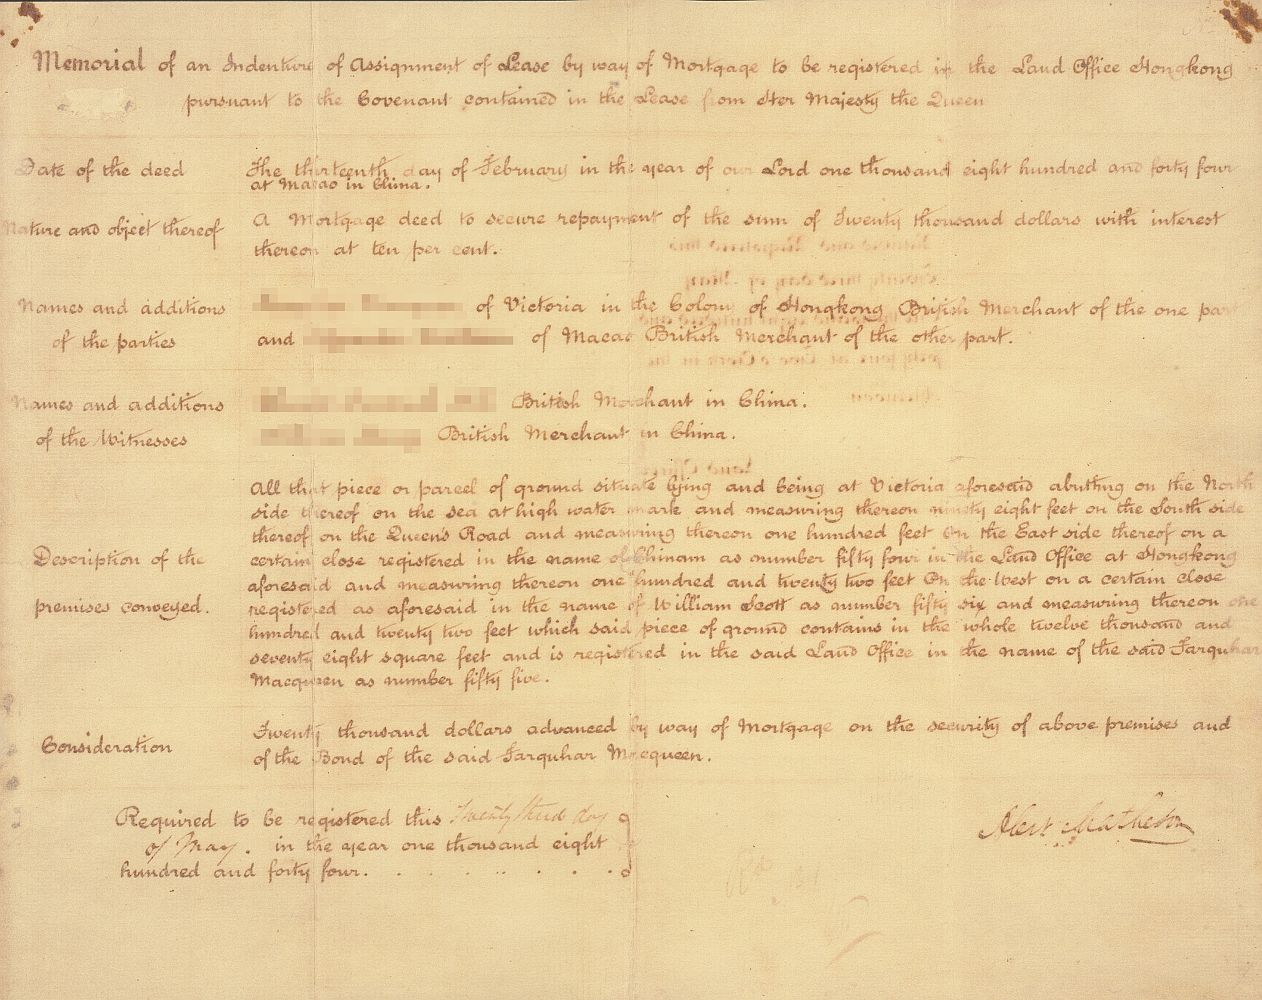 Memorial of an Indenture of Assignment of Lease by way of Mortgage to be registered in the Land Office Hongkong
pursuant to the Covenant contained in the Lease from Her Majesty the Queen
Date of the deed
The thirteenth day of February in the year of our Lord one thousand eight hundred and forty four
at Macao in China.
Nature and object thereof
A Mortgage deed to secure repayment of the sum of Twenty thousand dollars with interest
thereon at ten per cent.
Names and additions
of the parties
of Victoria in the Colony of Hongkong British Merchant of the one part
and of Macao British Merchant of the other part.
Names and additions
of the Witnesses
British Merchant in China.
British Merchant in China.
Description of the
premises conveyed.
All that piece or parcel of ground situate lying and being at Victoria aforesaid abutting on the North
side thereof on the sea at high water mark and measuring thereon ninety eight feet on the South side
thereof on the Queen's Road and measuring thereon one hundred feet On the East side thereof on a
certain close registered in the name of Chinam as number fifty four in the Land Office at Hongkong
aforesaid and measuring thereon one hundred and twenty two feet On the West on a certain close
registered as aforesaid in the name of William Scott as number fifty six and measuring thereon one
hundred and twenty two feet which said piece of ground contains in the whole twelve thousand and
seventy eight square feet and is registered in the said Land Office in the name of the said Farquhar
Macqueen as number fifty five.
Consideration
Twenty thousand dollars advanced by way of Mortgage on the security of above premises and
of the Bond of the said Farquhar Macqueen.
Required to be registered this Twenty third day
of May. in the year one thousand eight
hundred and forty four.
Alexr Matheson